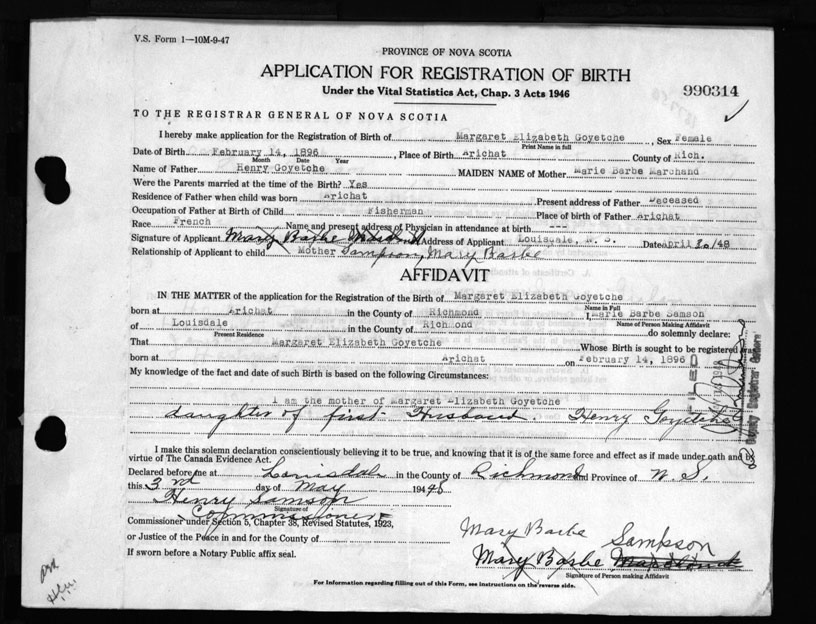 V.S. Form 1—10M-9-47
PROVINCE OF NOVA SCOTIA
APPLICATION FOR REGISTRATION OF BIRTH
Under the Vital Statistics Act, Chap. 3 Acts 1946
990314
TO THE REGISTRAR GENERAL OF NOVA SCOTIA
I hereby make application for the Registration of Birth of Margaret Elizabeth Goyetche, Sex Female
Print Name in full
Date of Birth February 14, 1896, Place of Birth Arichat County of Rich.
Month Date Year
Name of Father Henry Goyetche MAIDEN NAME of Mother Marie Barbe Marchand
Were the Parents married at the time of the Birth? Yes
Residence of Father when child was born Arichat Present address of Father Deceased
Occupation of Father at Birth of Child Fisherman Place of birth of Father Arichat
Race French Name and present address of Physician in attendance at birth ---
Signature of Applicant Mary Barbe Address of Applicant Louisdale, N. S. Date April 30/48
Relationship of Applicant to child Mother Sampson, Mary Barbe
AFFIDAVIT
IN THE MATTER of the application for the Registration of the Birth of Margaret Elizabeth Goyetche
Name in Full
born at Arichat in the County of Richmond I, Marie Barbe Samson
Name of Person Making Affidavit
of Louisdale in the County of Richmond do solemnly declare:
Present Residence
That Margaret Elizabeth Goyetche Whose Birth is sought to be registered was
born at Arichat on February 14, 1896
My knowledge of the fact and date of such Birth is based on the following Circumstances:
I am the mother of Margaret Elizabeth Goyetche
daughter of first Husband. Henry Goyetche
I make this solemn declaration conscientiously believing it to be true, and knowing that it is of the same force and effect as if made under oath and by
virtue of The Canada Evidence Act.
Declared before me at Louisdale in the County of Richmond and Province of N. S,
this 3rd day of May 1948
Henry Samson
Signature of
Commissioner
Commissioner under Section 5, Chapter 38, Revised Statutes, 1923,
or Justice of the Peace in and for the County of
Mary Barbe Sampson
If sworn before a Notary Public affix seal.
Mary Barbe Marchand
Signature of Person making Affidavit
For Information regarding filling out of this Form, see instructions on the reverse side.